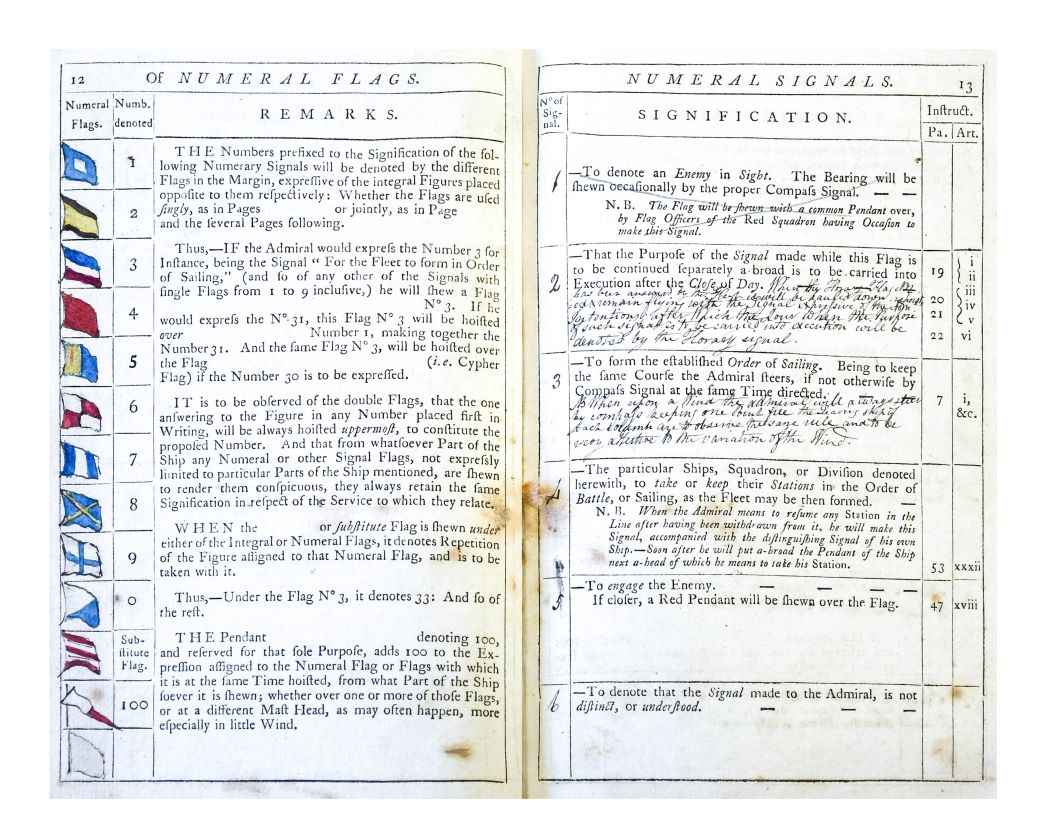 12 Of NUMERAL FLAGS.
Numeral Flags.
Numb. denoted
REMARKS.
1
2
3
4
5
6
7
8
9
0
Sub-
ſtitute
Flag.
100
THE Numbers prefixed to the Signification of the fol-
lowing Numerary Signals will be denoted by the different
Flags in the Margin, expreſſive of the integral Figures placed
oppoſite to them reſpectively: Whether the Flags are uſed
ſingly, as in Pages or jointly, as in Page
and the ſeveral Pages following.
Thus,—IF the Admiral would expreſs the Number 3 for
Inſtance, being the Signal “ For the Fleet to form in Order
of Sailing,” (and ſo of any other of the Signals with
ſingle Flags from 1 to 9 incluſive,) he will ſhew a Flag
N° 3. If he
would expreſs the N°. 31, this Flag N° 3 will be hoiſted
over Number 1, making together the
Number 31. And the ſame Flag N° 3, will be hoiſted over
the Flag (i.e. Cypher
Flag) if the Number 30 is to be expreſſed.
IT is to be obſerved of the double Flags, that the one
anſwering to the Figure in any Number placed firſt in
Writing, will be always hoiſted uppermoſt, to conſtitute the
propoſed Number. And that from whatſoever Part of the
Ship any Numeral or other Signal Flags, not expreſsly
limited to particular Parts of the Ship mentioned, are ſhewn
to render them conſpicuous, they always retain the ſame
Signification in reſpect of the Service to which they relate.
WHEN the or ſubſtitute Flag is ſhewn under
either of the Integral or Numeral Flags, it denotes Repetition
of the Figure aſſigned to that Numeral Flag, and is to be
taken with it.
Thus,—Under the Flag N° 3, it denotes 33: And ſo of
the reſt.
THE Pendant denoting 100,
and reſerved for that ſole Purpoſe, adds 100 to the Ex-
preſſion aſſigned to the Numeral Flag or Flags with which
it is at the ſame Time hoiſted, from what Part of the Ship
ſoever it is ſhewn; whether over one or more of thoſe Flags,
or at a different Maſt Head, as may often happen, more
eſpecially in little Wind.
NUMERAL SIGNALS. 13
N° of
Sig-
nal.
SIGNIFICATION.
Inſtruct.
Pa. Art.
1
—To denote an Enemy in Sight. The Bearing will be
ſhewn occaſionally by the proper Compaſs Signal. — —
N. B. The Flag will be ſhewn with a common Pendant over,
by Flag Officers of the Red Squadron having Occaſion to
make this Signal.
2
—That the Purpoſe of the Signal made while this Flag is
to be continued ſeparately a-broad is to be carried into
Execution after the Cloſe of Day. When the Flag
has been answered by the Fleet it will be hauled down
remain flying with the Signal expressive of the
Intention; after which the Hour when the Purpose
of such signal is to be carried into execution will be
denoted by the signal.
19 { i
ii
20 { iii
iv
21 v
22 vi
3
—To form the eſtabliſhed Order of Sailing. Being to keep
the ſame Courſe the Admiral ſteers, if not otherwiſe by
Compaſs Signal at the ſame Time directed.
NB When upon a Wind the admiral will always steer
by compass keeping one point free the leading ship of
each column are to observe the same rule and to be
very attentive to the variation of the Wind.
7 i,
&c.
4
—The particular Ships, Squadron, or Diviſion denoted
herewith, to take or keep their Stations in the Order of
Battle, or Sailing, as the Fleet may be then formed. —
N. B. When the Admiral means to reſume any Station in the
Line after having been withdrawn from it, he will make this
Signal, accompanied with the diſtinguiſhing Signal of his own
Ship.—Soon after he will put a-broad the Pendant of the Ship
next a-head of which he means to take his Station.
53 xxxii
5
—To engage the Enemy. — — —
If cloſer, a Red Pendant will be ſhewn over the Flag.
47 xviii
6
—To denote that the Signal made to the Admiral, is not
diſtinct, or underſtood. — — —